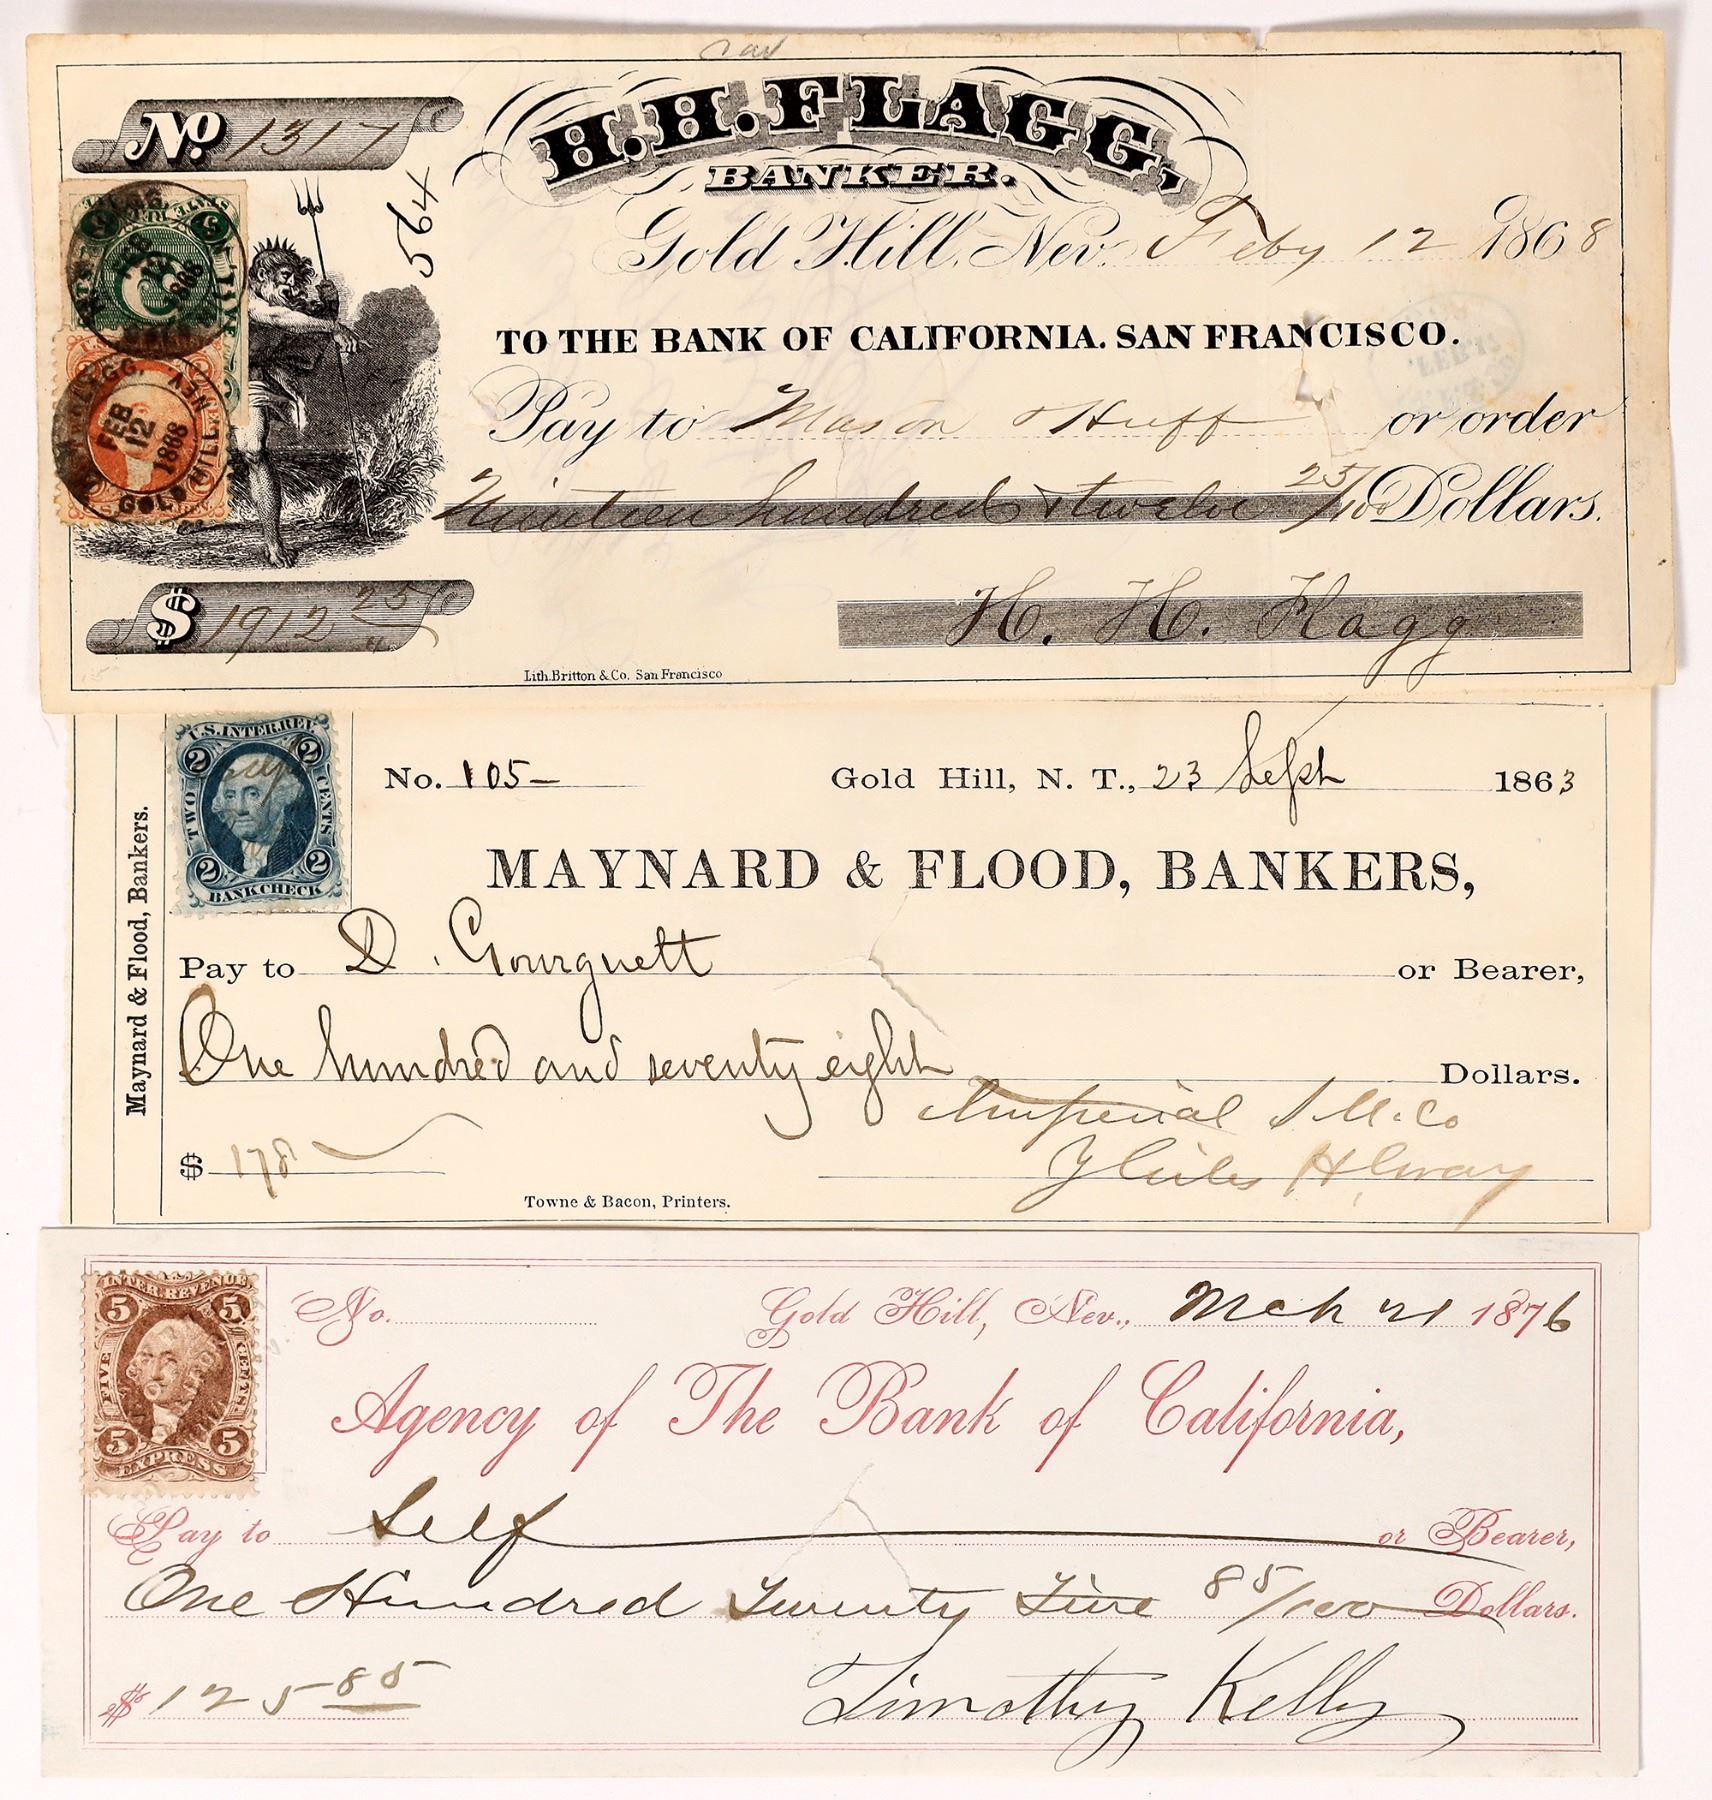 No. 1317
564
H. H. FLAGG,
BANKER.
Gold Hill, Nev. Feby 12 1868
TO THE BANK OF CALIFORNIA. SAN FRANCISCO.
Pay to Mason & Huff or order
Nineteen hundred & twelve 25/100 Dollars.
$ 1912 25
H. H. Flagg
Lith. Britton & Co. San Francisco
FEB 12 1868
GOLD HILL NEV
FEB 12 1868
Maynard & Flood, Bankers.
U.S. INTER. REV.
2 2
TWO CENTS
2 2
BANK CHECK
No. 105-
Gold Hill, N. T., 23 Sept 1863
MAYNARD & FLOOD, BANKERS,
Pay to D. Gourguett or Bearer,
One hundred and seventy eight Dollars.
Imperial S M. Co
$ 178
Towne & Bacon, Printers.
INTER. REVENUE
5 5
FIVE CENTS
5 5
EXPRESS
No.
Gold Hill, Nev., Mch 21 1876
Agency of The Bank of California,
Pay to Self or Bearer,
One Hundred Twenty Five 85/100 Dollars.
$ 125 85
Timothy Kelly